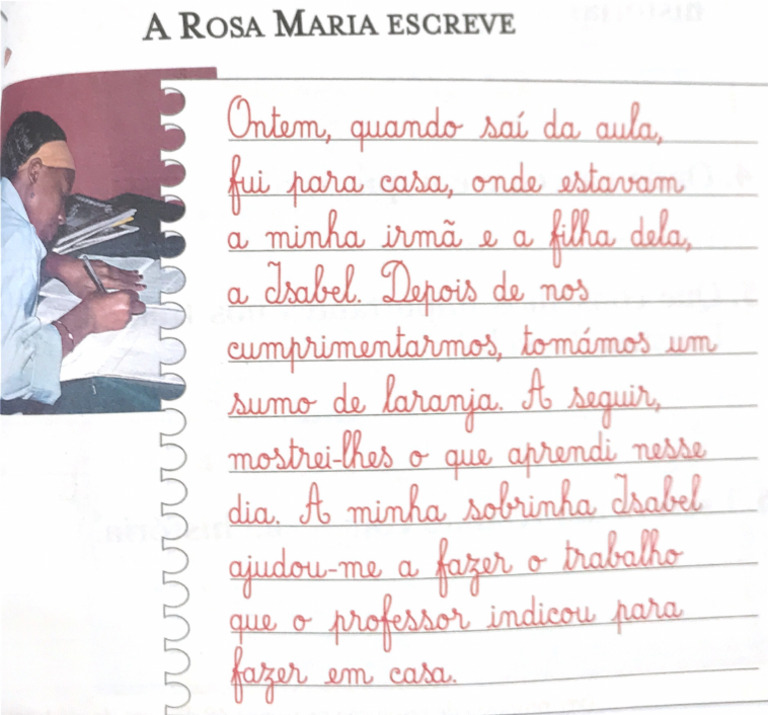 A ROSA MARIA ESCREVE
Ontem, quando saí da aula,
fui para casa, onde estavam
a minha irmã e a filha dela,
a Isabel. Depois de nos
cumprimentarmos, tomámos um
sumo de laranja. A seguir,
mostrei-lhes o que aprendi nesse
dia. A minha sobrinha Isabel
ajudou-me a fazer o trabalho
que o professor indicou para
fazer em casa.